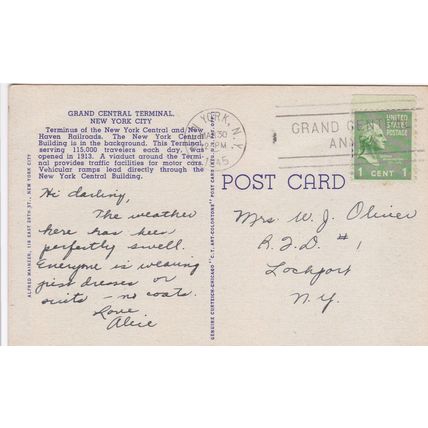 GRAND CENTRAL TERMINAL,
NEW YORK CITY
Terminus of the New York Central and New
Haven Railroads. The New York Central
Building is in the background. This Terminal,
serving 115,000 travelers each day, was
opened in 1913. A viaduct around the Termi-
nal provides traffic facilities for motor cars.
Vehicular ramps lead directly through the
New York Central Building.
Hi darling,
The weather
here has been
perfectly swell.
Everyone is wearing
just dresses or
suits - no coats.
Love
Alice
ALFRED MAINZER, 118 EAST 28TH ST., NEW YORK CITY
GENUINE CURTEICH-CHICAGO "C.T. ART-COLORTONE" POST CARD
YORK, N.Y.
MAR 30
PM
1945
GRAND CENT
ANN
UNITED
STATES
POSTAGE
1 CENT 1
POST CARD
Mrs. W. J. Oliver
R.F.D. #1
Lockport
N.Y.